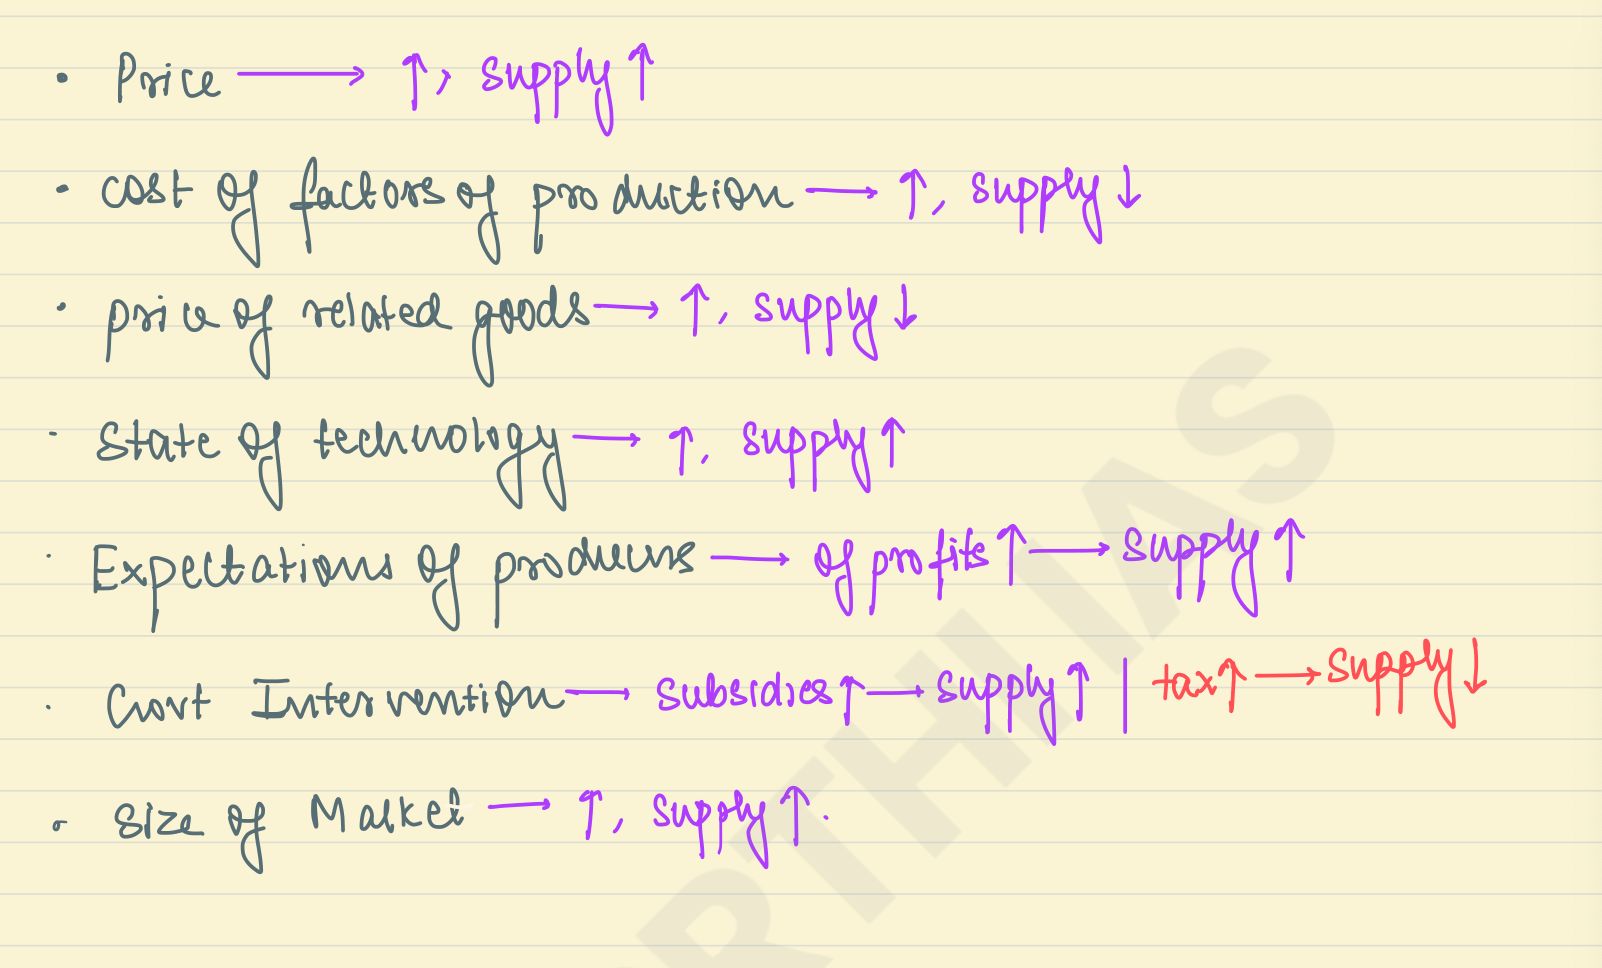 • Price → ↑, supply ↑
• cost of factors of production → ↑, supply ↓
• price of related goods → ↑, supply ↓
• State of technology → ↑, supply ↑
• Expectations of producers → of profits ↑ → supply ↑
• Govt Intervention → subsidies ↑ → supply ↑ | tax ↑ → supply ↓
• Size of Market → ↑, supply ↑.
RTH IAS